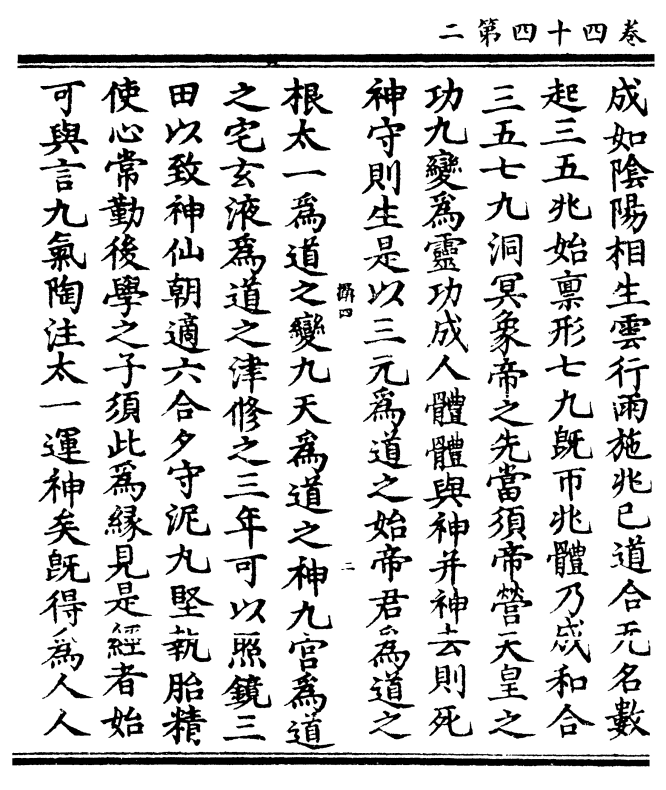 卷四十四第二
成如陰陽相生雲行雨施兆已道合无名數
起三五兆始禀形七九旣帀兆體乃成和合
三五七九洞冥象帝之先當須帝營天皇之
功九變爲靈功成人體體與神并神去則死
神守則生是以三元爲道之始帝君爲道之
根太一爲道之變九天爲道之神九宮爲道
之宅玄液爲道之津修之三年可以照鏡三
田以致神仙朝適六合夕守泥丸堅執胎精
使心常勤後學之子須此爲緣見是經者始
可與言九氣陶注太一運神矣旣得爲人人
二